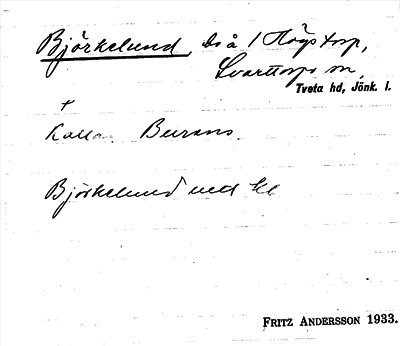 Björkelund, ds å 1 Högstorp,
Svarttorps sn,
Tveta hd, Jönk. l.
+
Kallas Burans.
Björkelund ned kl
FRITZ ANDERSSON 1933.